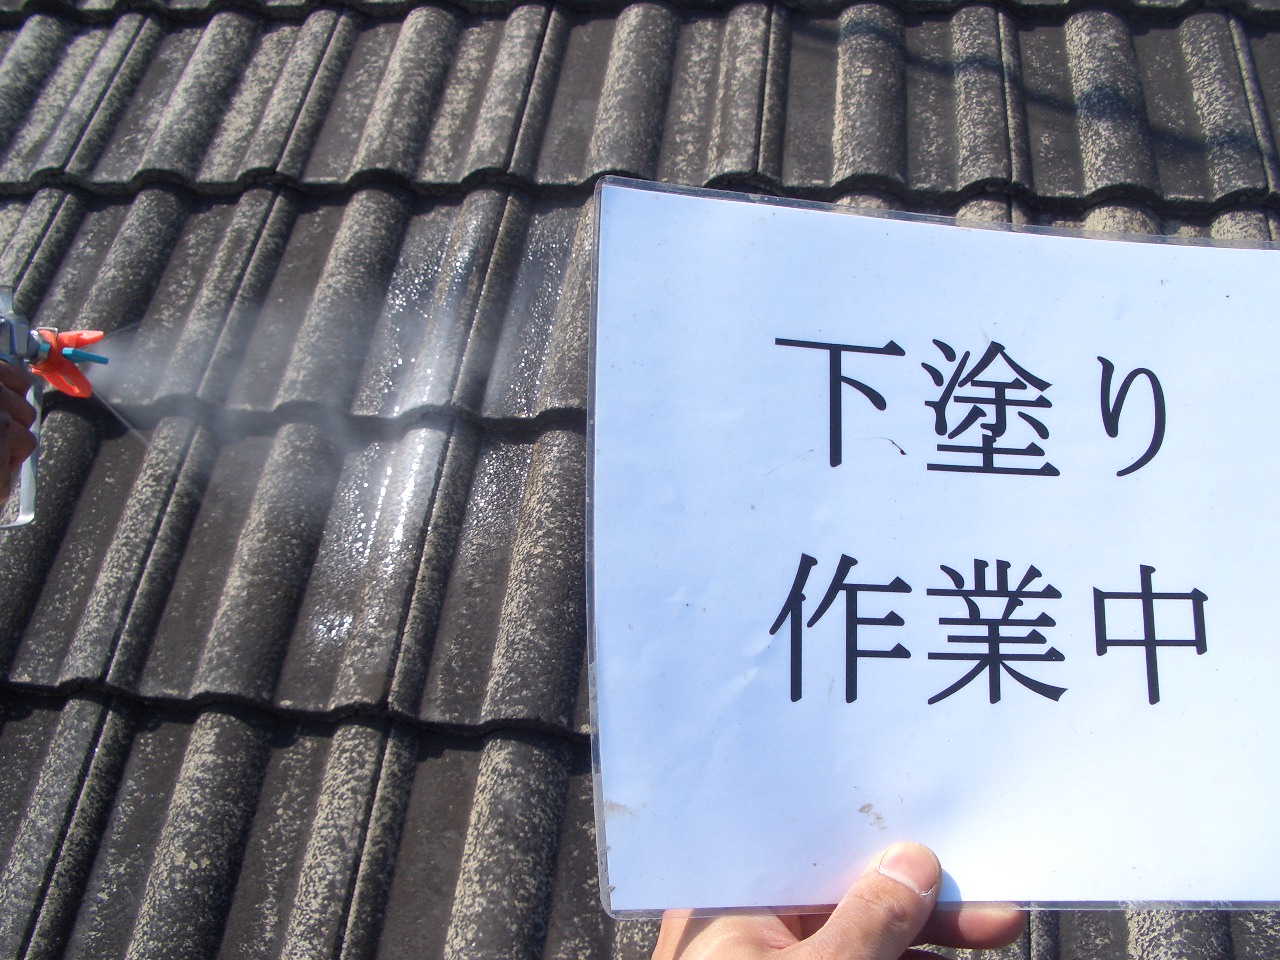 下塗り
作業中